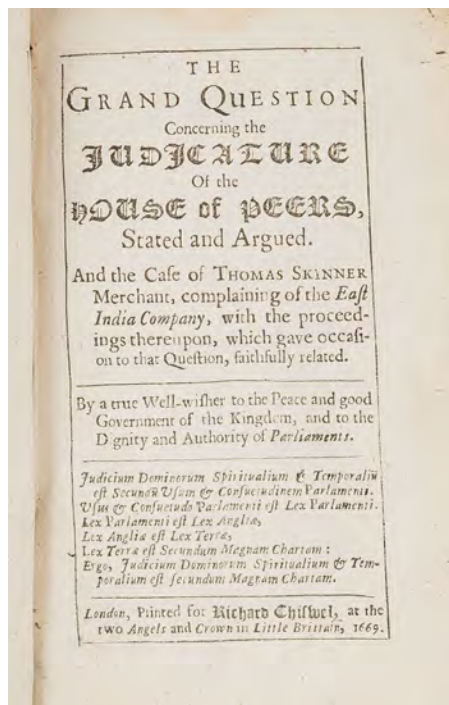 THE
GRAND QUESTION
Concerning the
JUDICATURE
Of the
HOUSE of PEERS,
Stated and Argued.
And the Caſe of THOMAS SKINNER
Merchant, complaining of the Eaſt
India Company, with the proceed-
ings thereupon, which gave occaſi-
on to that Queſtion, faithfully related.
By a true Well-wiſher to the Peace and good
Government of the Kingdom, and to the
Dignity and Authority of Parliaments.
Judicium Dominorum Spiritualium & Temporaliū
eſt Secundū Uſum & Conſuetudinem Parlamenti.
Uſus & Conſuetudo Parlamenti eſt Lex Parlamenti.
Lex Parlamenti eſt Lex Angliæ,
Lex Angliæ eſt Lex Terræ,
Lex Terræ eſt Secundum Magnam Chartam:
Ergo, Judicium Dominorum Spiritualium & Tem-
poralium eſt ſecundum Magnam Chartam.
London, Printed for Richard Chiſwel, at the
two Angels and Crown in Little Brittain, 1669.